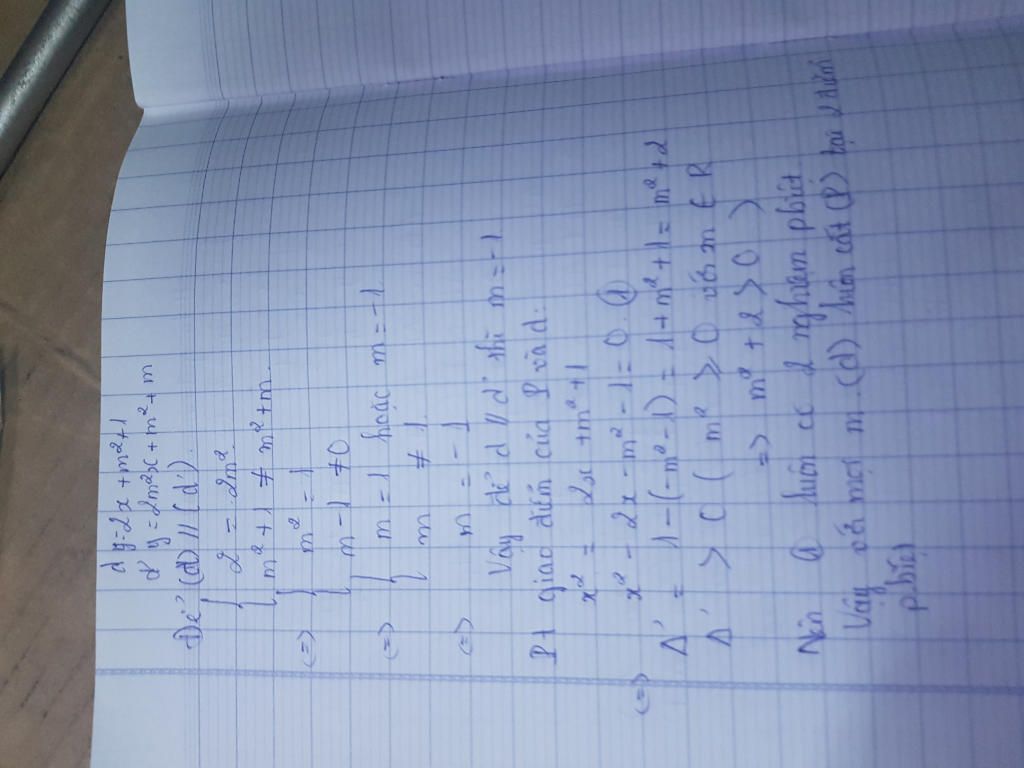 d y=2x+m²+1
d' y=2m²x+m²+m
Để (d) // (d').
{ 2 = 2m²
m²+1 ≠ m²+m.
<=> { m² = 1
m-1 ≠ 0
<=> { m = 1 hoặc m = -1
m ≠ 1
<=> m = -1
Vậy để d // d' thì m = -1
Pt giao điểm của P và d:
x² = 2x + m²+1
<=> x² - 2x - m² - 1 = 0 ①
Δ' = 1-(-m²-1) = 1+m²+1 = m²+2
Δ' > 0 ( m² ≥ 0 với m ∈ R
=> m² + 2 > 0 )
Nên ① luôn có 2 nghiệm pbiệt
Vậy với mọi m. (d) luôn cắt (P) tại 2 điểm
pbiệt